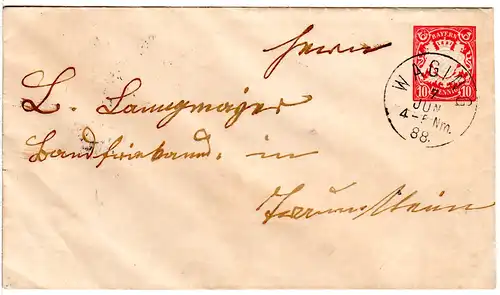 BAYERN
Herrn
WAGING
7
JUN
4-5 Nm.
88.
10 PFENNIG 10
L. Langmayer
in
Traunstein